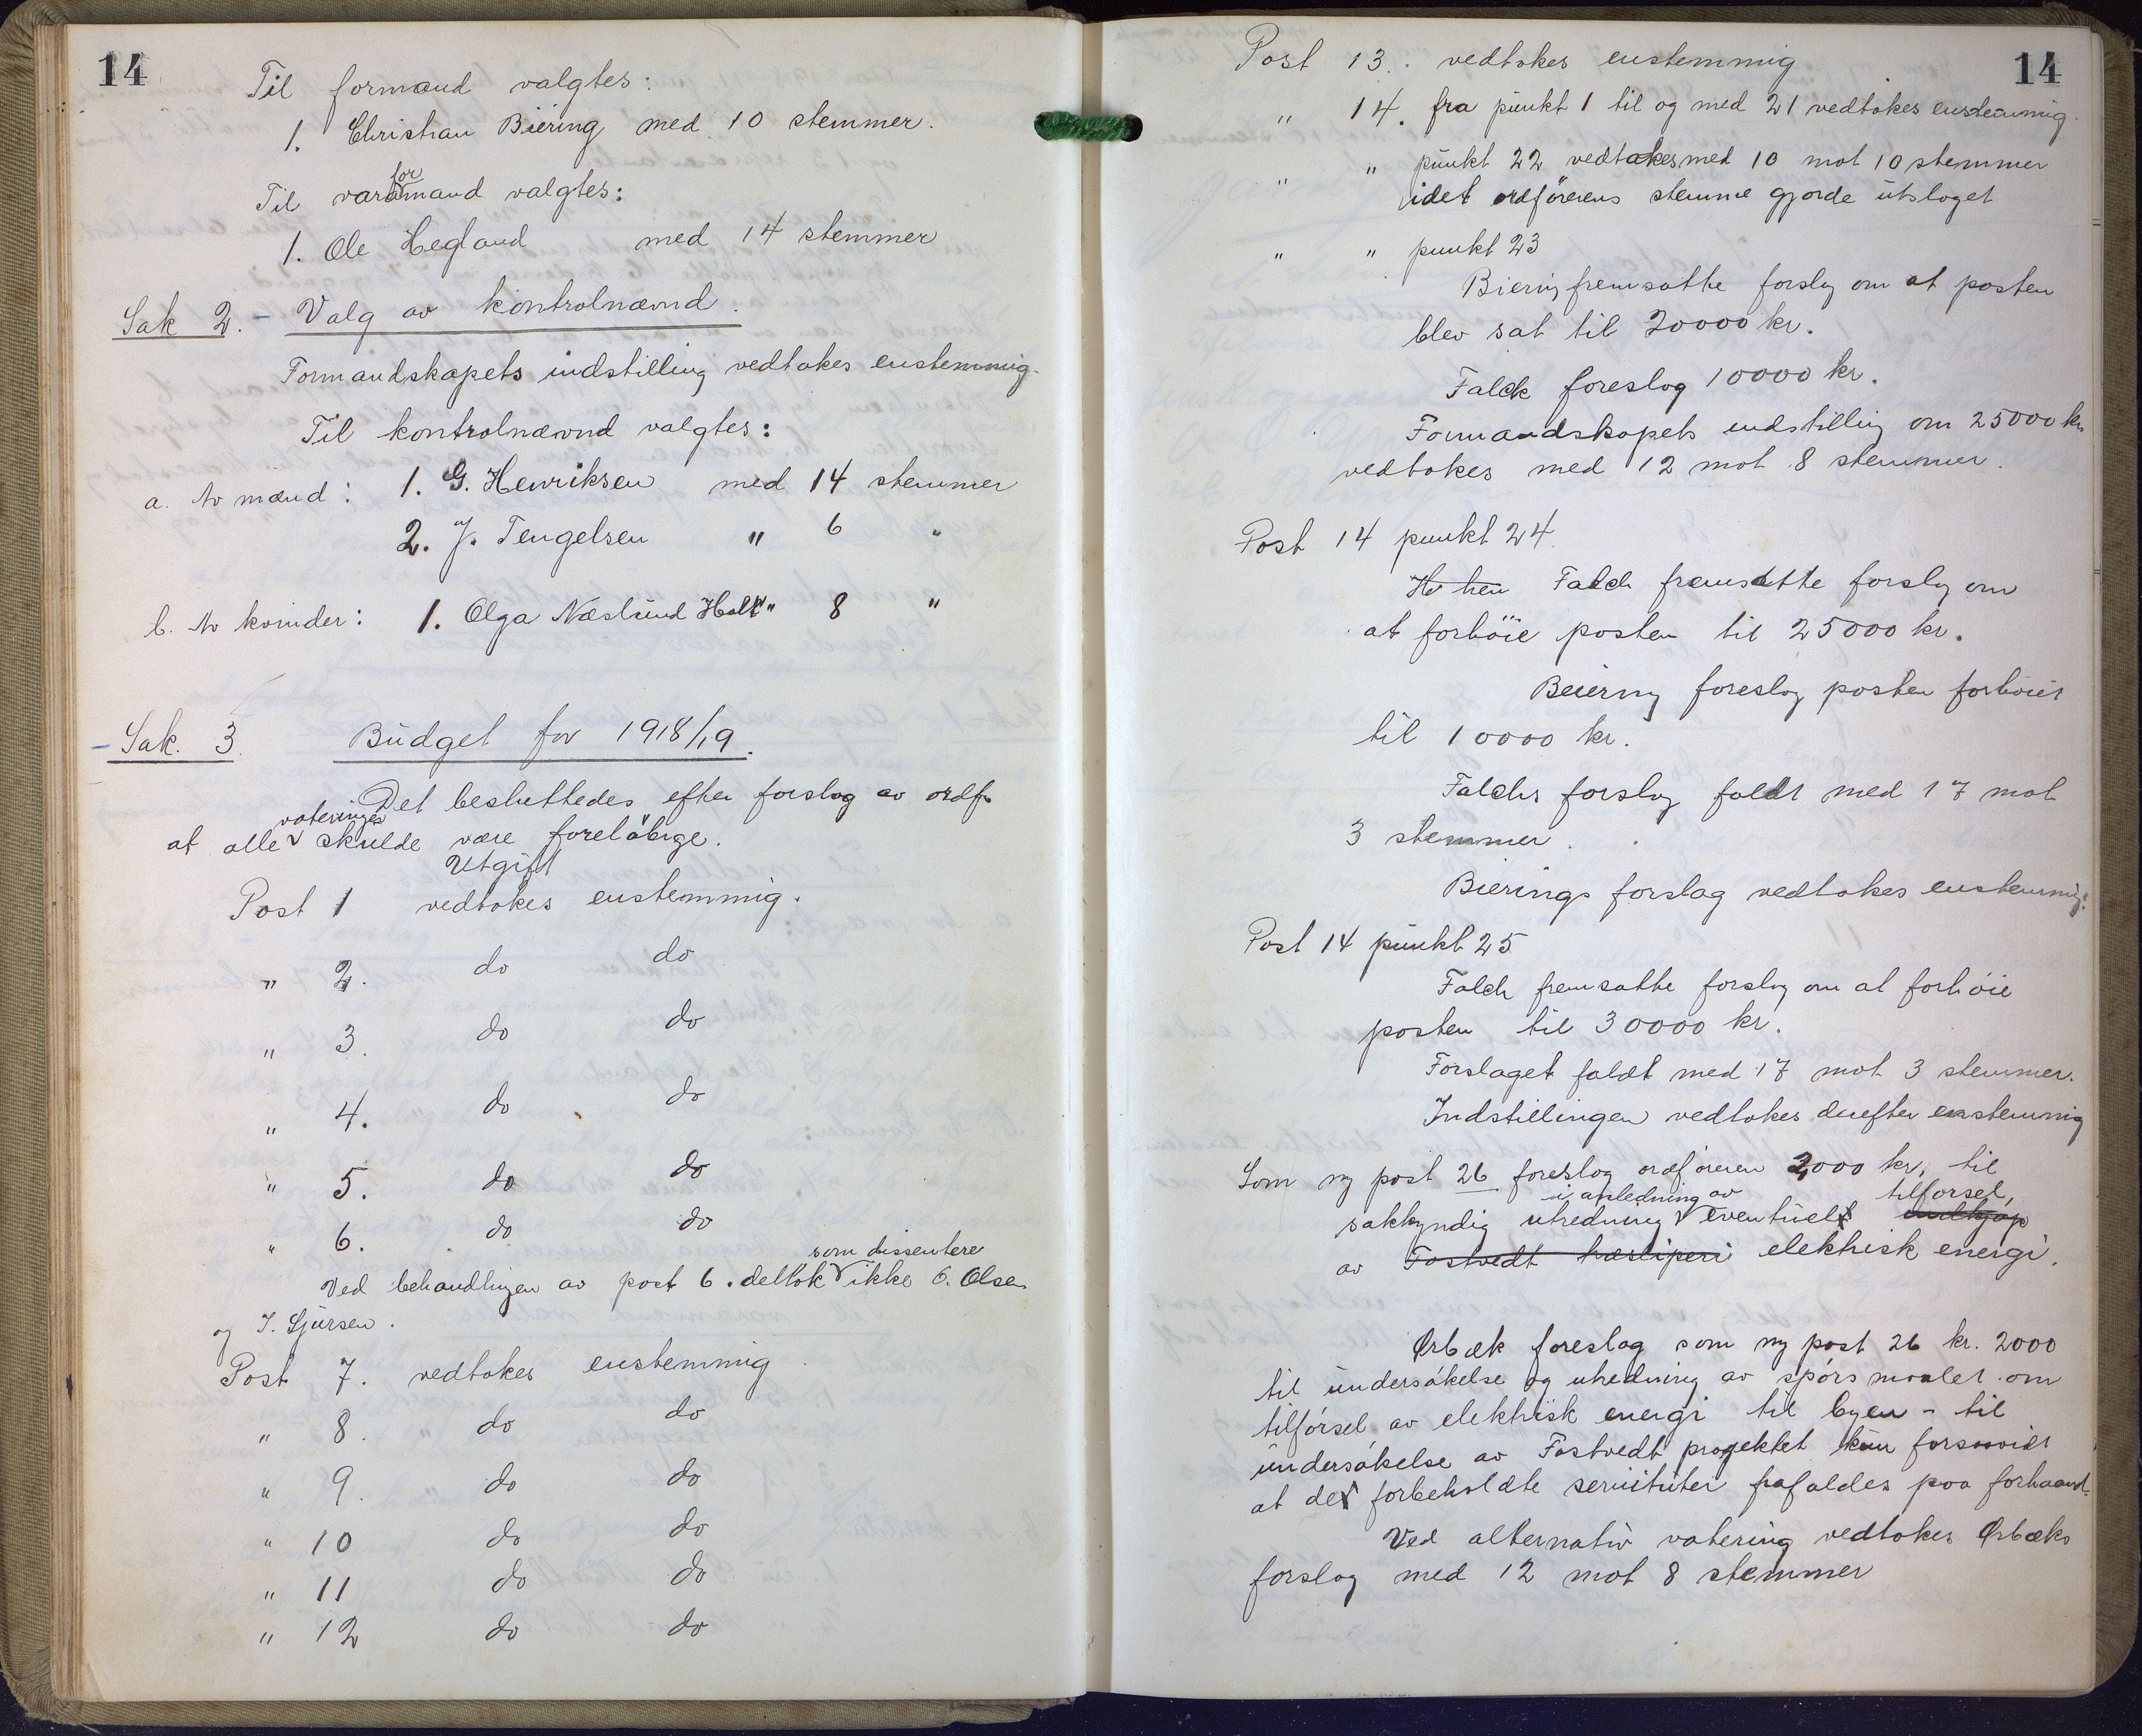 14
Til formand valgtes:
1. Christian Biering med 10 stemmer.
for
Til varamand valgtes:
1. Ole Hegland med 14 stemmer
Sak 2. - Valg av kontrolnævnd.
Formandskapets indstilling vedtokes enstemmig.
Til kontrolnævnd valgtes:
a. Av mænd: 1. G. Henriksen med 14 stemmer
2. J. Tengelsen " 6 "
b. Av kvinder: 1. Olga Næslund Holt " 8 "
- Sak. 3. Budget for 1918/19.
Det besluttedes efter forslag av ordf.
voteringer
at alle v skulde være foreløbige.
Utgift
Post 1 vedtokes enstemmig.
" 2. do do
" 3. do do
" 4. do do
" 5. do do
" 6. do do
som dissentere
Ved behandlingen av post 6. deltok v ikke O. Olsen
og I. Sjursen.
Post 7. vedtokes enstemmig.
" 8. do do
" 9. do do
" 10 do do
" 11 do do
" 12 do do
14
Post 13. vedtokes enstemmig
" 14. fra punkt 1 til og med 21 vedtokes enstemmig.
" " punkt 22 vedtokes med 10 mot 10 stemmer
idet ordførerens stemme gjorde utslaget
" " punkt 23
Biering fremsatte forslag om at posten
blev sat til 20000 kr.
Falck foreslog 10000 kr.
Formandskapets indstilling om 25000 kr.
vedtokes med 12 mot 8 stemmer.
Post 14 punkt 24.
Falch fremsatte forslag om
at forhöie posten til 25000 kr.
Beiering foreslog posten forhöiet
til 10000 kr.
Falchs forslag faldt med 17 mot
3 stemmer.
Bierings forslag vedtokes enstemmig.
Post 14 punkt 25
Falch fremsatte forslag om at forhöie
posten til 30000 kr.
Forslaget faldt med 17 mot 3 stemmer.
Indstillingen vedtokes derefter enstemmig
Som ny post 26 foreslog ordføreren 2000 kr. til
i anledning av tilførsel,
sakkyndig utredning v eventuelt indkjøp
av Fostvedt elektrisk energi.
Ørbæk foreslog som ny post 26 kr. 2000
til undersøkelse og utredning av spørsmaalet om
tilførsel av elektrisk energi til byen - til
undersøkelse av Fostvedt progektet kun forsaavidt
at de forbeholdte servituter frafaldes paa forhaand.
Ved alternativ votering vedtokes Ørbæks
forslag med 12 mot 8 stemmer